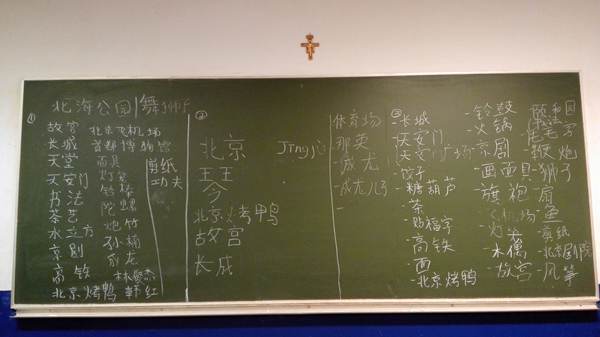 北海公园 舞狮子
①
故宫
长城
天堂
天安门
书法
茶艺
水立方
京剧
高铁
北京烤鸭
北京飞机场
首都博物馆
面具
灯笼
炮竹
孙楠
成龙
韩红
剪纸
功夫
②
北京 Jīngjù
王王
今
北京烤鸭
故宫
长成
体育场
那英
-成龙
-成龙儿子
-
③
-长城
-天安门
-天安门广场
-饺子
-糖葫芦
-茶
-贴福字
-高铁
-面
-北京烤鸭
-铃鼓
-火锅
-京剧
-画面具
-旗袍
-机场
-灯笼
-木偶
-故宫
颐和园
-鞭炮
-狮子
-扇
-鱼
-剪纸
-风筝